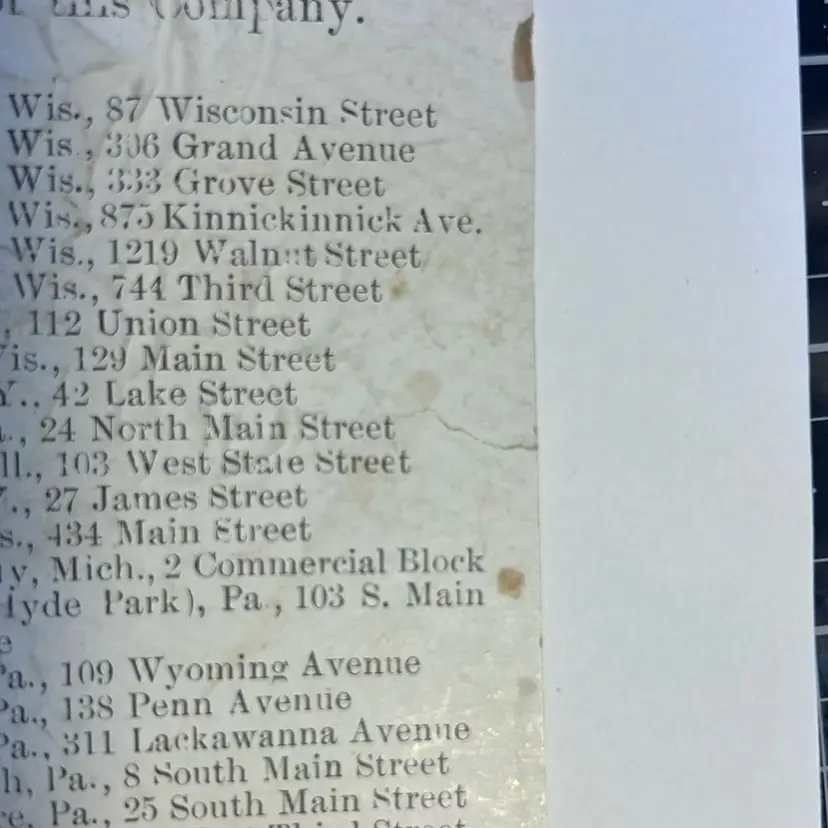 this Company.
Wis., 87 Wisconsin Street
Wis., 306 Grand Avenue
Wis., 333 Grove Street
Wis., 875 Kinnickinnick Ave.
Wis., 1219 Walnut Street
Wis., 744 Third Street
, 112 Union Street
is., 129 Main Street
Y., 42 Lake Street
., 24 North Main Street
ll., 103 West State Street
., 27 James Street
s., 434 Main Street
y, Mich., 2 Commercial Block
Hyde Park), Pa., 103 S. Main
e
Pa., 109 Wyoming Avenue
Pa., 138 Penn Avenue
Pa., 311 Lackawanna Avenue
h, Pa., 8 South Main Street
re, Pa., 25 South Main Street
Third Street